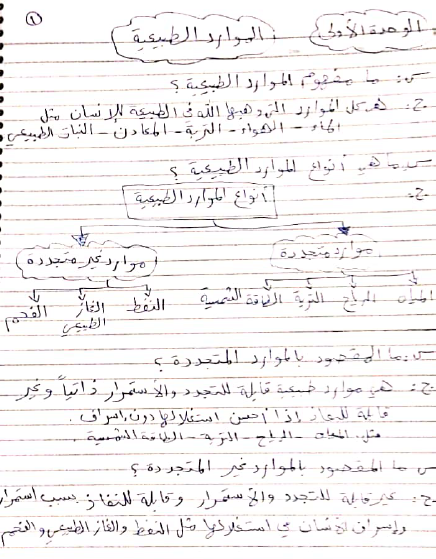 ①
الوحدة الأولى الموارد الطبيعية
س: ما مفهوم الموارد الطبيعية ؟
ج: هي كل الموارد التي وهبها الله في الطبيعة للإنسان مثل
الماء - الهواء - التربة - المعادن - النبات الطبيعي
س: ما هي أنواع الموارد الطبيعية ؟
ج:
أنواع الموارد الطبيعية
موارد متجددة موارد غير متجددة
المياه الرياح التربة الطاقة الشمسية النفط الغاز الطبيعي الفحم
س: ما المقصود بالموارد المتجددة ؟
ج: هي موارد طبيعية قابلة للتجدد والاستمرار ذاتياً وغير
قابلة للنفاذ إذا أحسن استغلالها دون إسراف .
مثل: المياه - الرياح - التربة - الطاقة الشمسية
س: ما المقصود بالموارد غير المتجددة ؟
ج: غير قابلة للتجدد والاستمرار وقابلة للنفاذ بسبب استمرار
وإسراف الإنسان في استغلالها مثل النفط والغاز الطبيعي والفحم